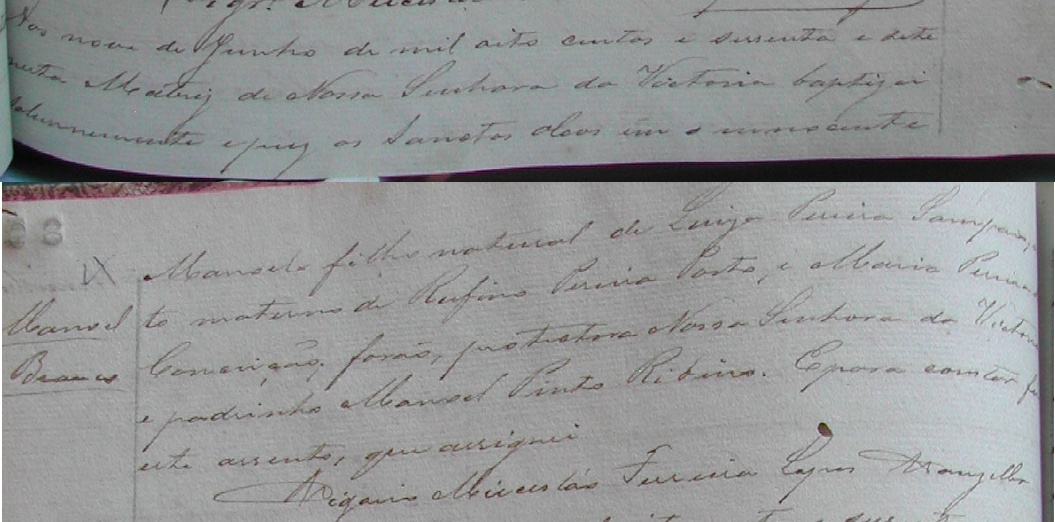 Aos nove de Junho de mil oito centos e sessenta e sete
nesta Matriz de Nossa Senhora da Victoria baptizei
solemnemente e puz os Sanctos oleos em o innocente
Manoel filho natural de Luiza Pereira Sampaio,
to materno de Rufino Pereira Porto, e Maria Pereira
Manoel
Conceição. forão, protectora Nossa Senhora da Victoria
Branco
e padrinho Manoel Pinto Ribeiro. E para constar fiz
este assento, que assignei
Vigario Miceslás Ferreira Lopes Wanzeller